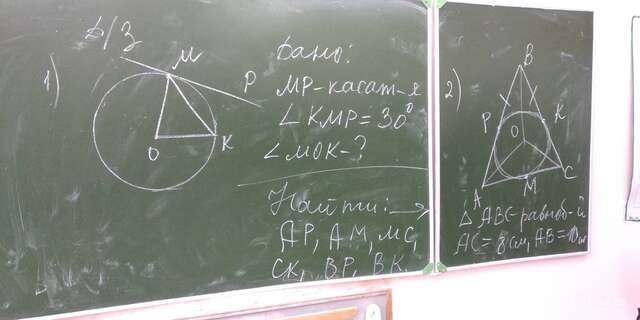 д/з
1)
M
P
O
K
Дано:
MP-касат-я
∠KMP=30°
∠MOK-?
Найти:→
AP, AM, MC,
CK, BP, BK.
2)
B
P
K
O
A
M
C
△ABC-равноб-й
AC=8см, AB=10см